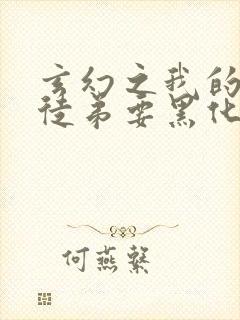 玄幻之我的
徒弟要黑化
何燕繁